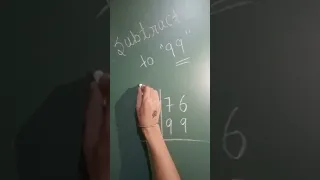 Subtract
to "99"
176
99